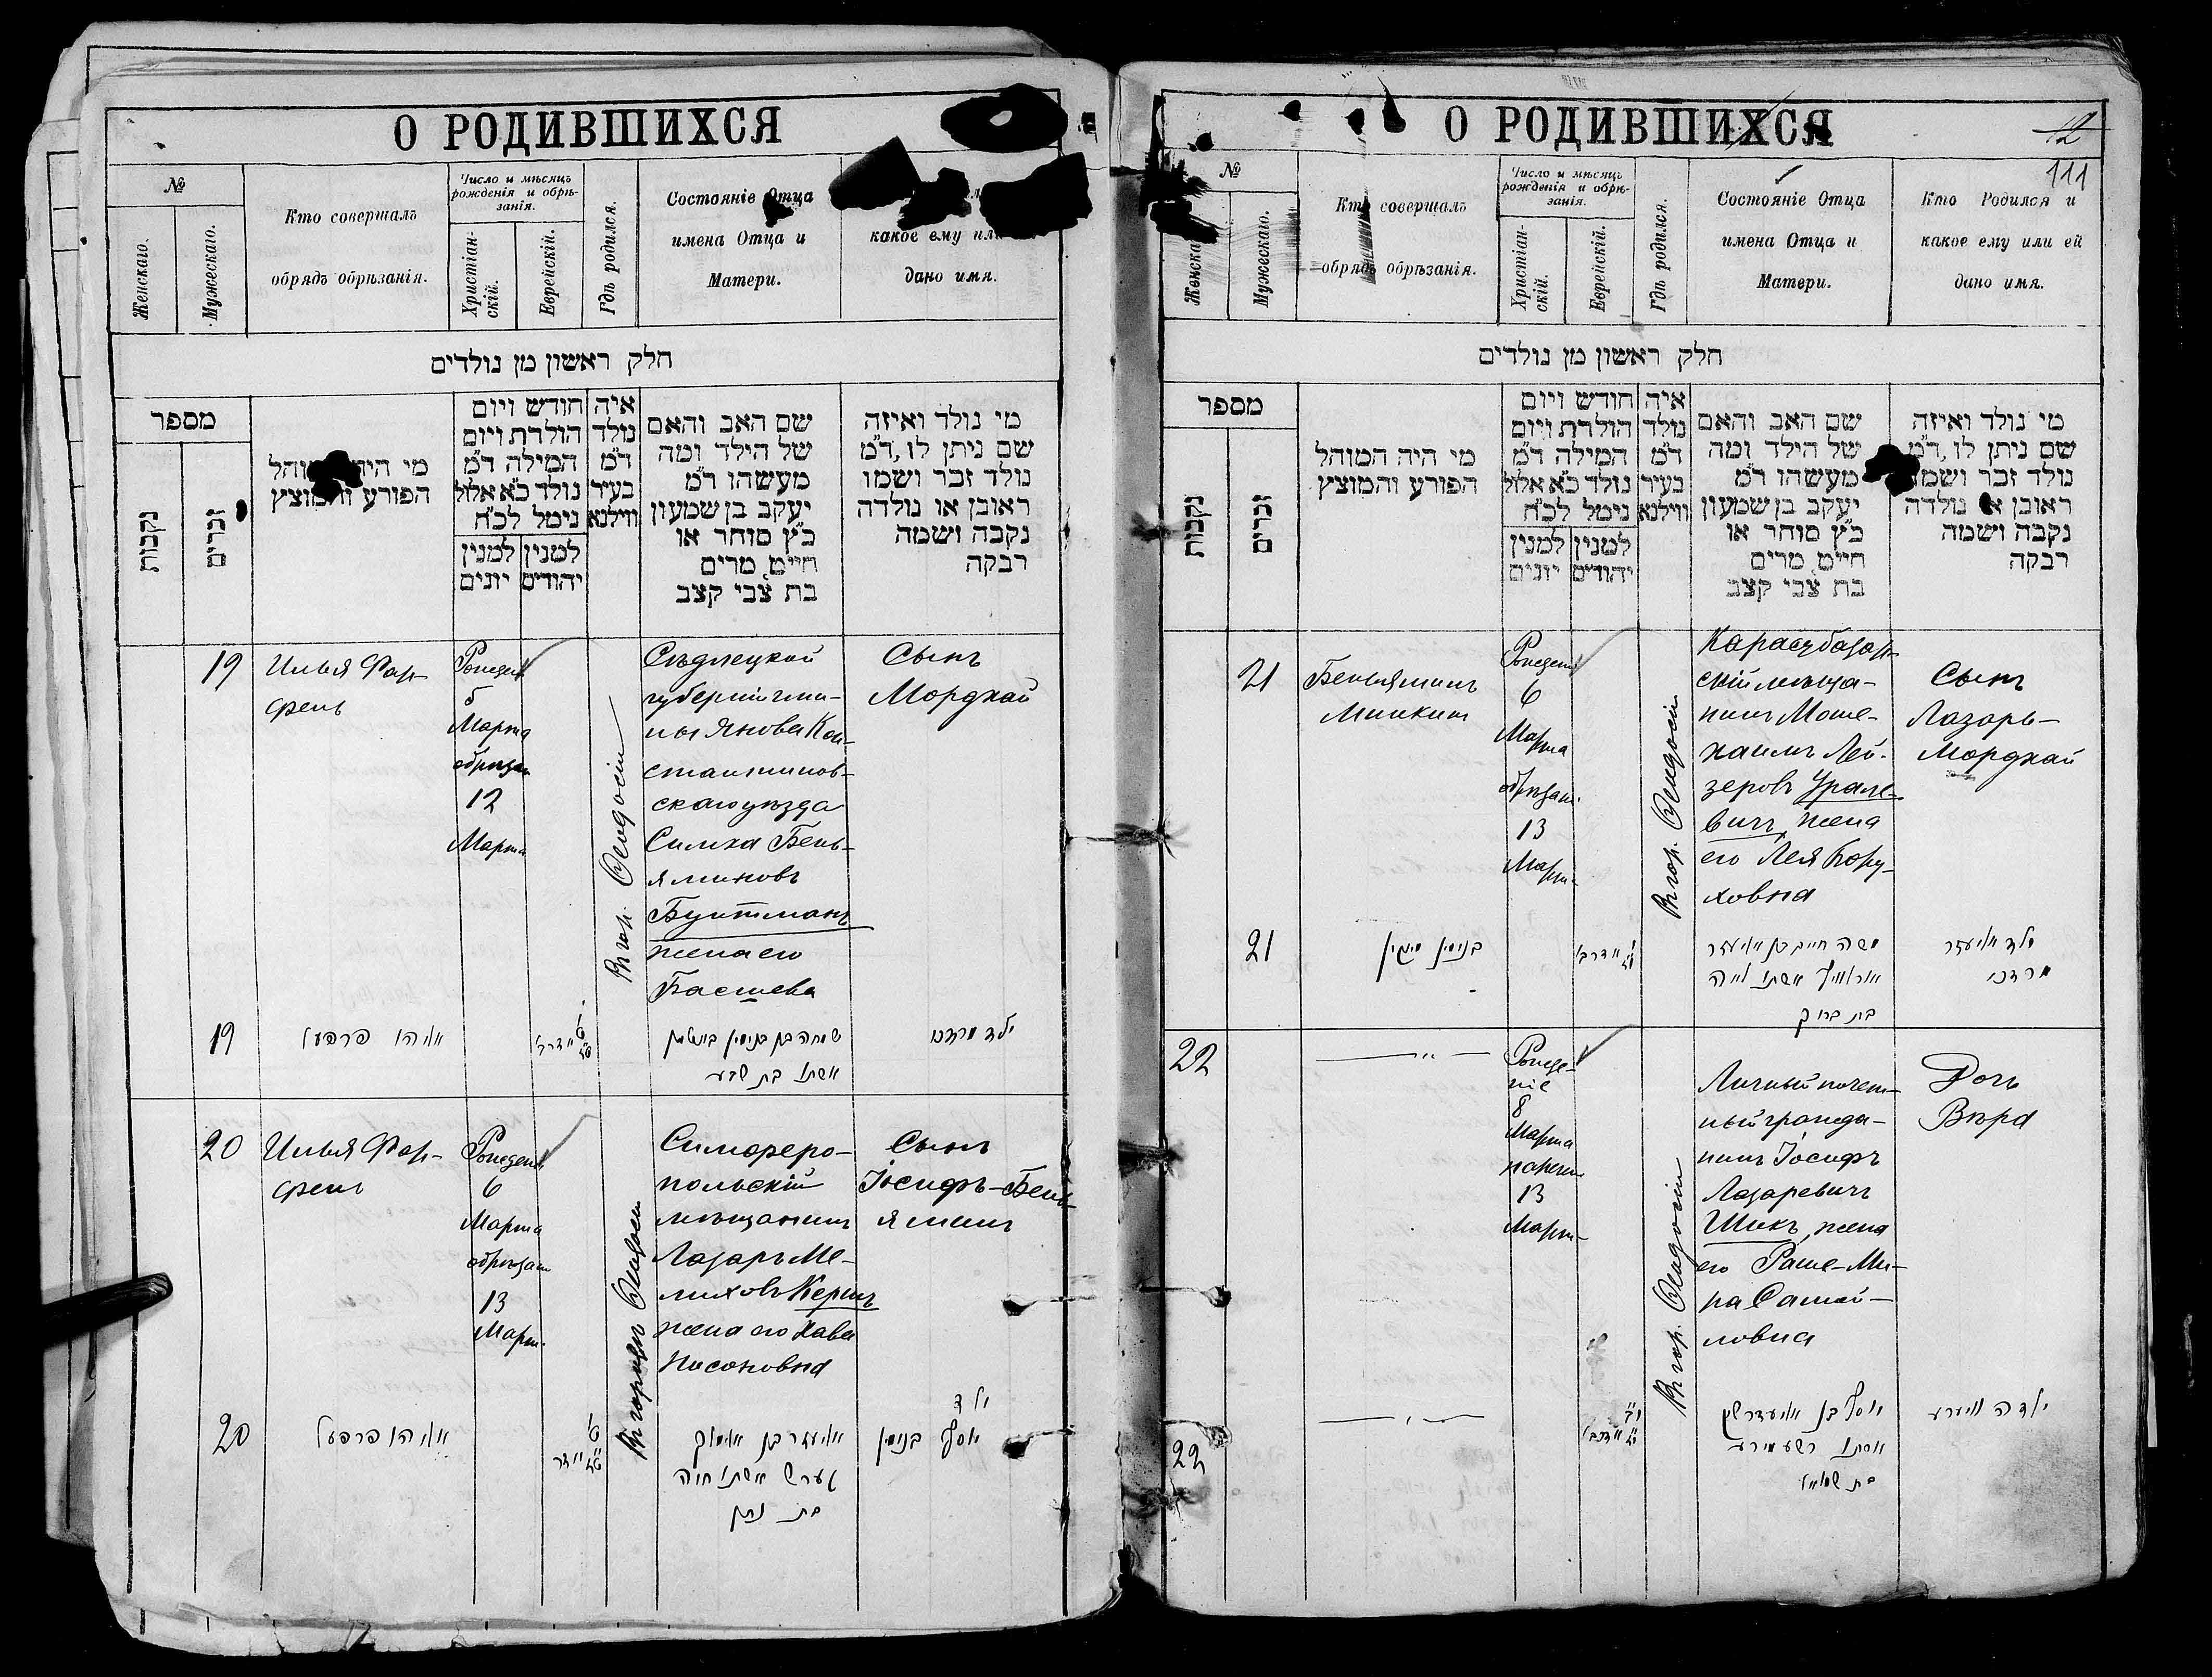 О РОДИВШИХСЯ
№
Женскаго.
Мужескаго.
Кто совершалъ
обрядъ обрѣзанія.
Число и мѣсяцъ
рожденія и обрѣ-
занія.
Христіан-
скій.
Еврейскій.
Гдѣ родился.
Состояніе Отца
имена Отца и
Матери.
какое ему или
дано имя.
חלק ראשון מן נולדים
מספר
נקבות
זכרים
מי היה
הפורע והמוצץ
איה חודש ויום
נולד הולדת ויום
ד״מ המילה ד״מ
בעיר נולד כ״א אלול
ווילנא נימל לכ״ח
למנין למנין
יהודים יונים
שם האב והאם
של הילד ומה
מעשהו ד״מ
יעקב בן שמעון
כ״ץ סוחר או
חייט מרים
בת צבי קצב
מי נולד ואיזה
שם ניתן לו, ד״מ
נולד זכר ושמו
ראובן או נולדה
נקבה ושמה
רבקה
19
Илья Фар-
фель
5
Марта
обрѣзан
12
Марта
Въ гор. Ѳеодосіи
Сѣдлецкой
губерніи гми-
ны Янова Кон-
стантинов-
скаго уѣзда
Симха Бень-
яминовъ
Бунтманъ
жена его
Басшева
Сынъ
Мордхай
19
אליהו פרפעל
שמחה בן בנימין בונטמן
אשתו בת שבע
ילד מרדכי
20
Илья Фар-
фель
6
Марта
обрѣзан
13
Март.
Въ городѣ Ѳеодосіи
Симферо-
польскій
мѣщанинъ
Лазарь Ме-
жена его Хава
Сынъ
Іосифъ-Бень-
яминъ
20
אליהו פרפעל
אשתו חוה
בת נתן
ילד
יוסף בנימין
О РОДИВШИХСЯ
12
111
№
Женска
Мужескаго.
Кто совершалъ
обрядъ обрѣзанія.
Число и мѣсяцъ
рожденія и обрѣ-
занія.
Христіан-
скій.
Еврейскій.
Гдѣ родился.
Состояніе Отца
имена Отца и
Матери.
Кто Родился и
какое ему или ей
дано имя.
חלק ראשון מן נולדים
מספר
נקבות
זכרים
מי היה המוהל
הפורע והמוצץ
איה חודש ויום
נולד הולדת ויום
ד״מ המילה ד״מ
בעיר נולד כ״א אלול
ווילנא נימל לכ״ח
למנין למנין
יהודים יונים
שם האב והאם
של הילד ומה
מעשהו ד״מ
יעקב בן שמעון
כ״ץ סוחר או
חייט מרים
בת צבי קצב
מי נולד ואיזה
שם ניתן לו, ד״מ
נולד זכר ושמו
ראובן או נולדה
נקבה ושמה
רבקה
21
Беньяминъ
Минкинъ
6
Марта
обрѣзан.
13
Март-
Въ гор. Ѳеодосіи
Карасубазар-
скій мѣща-
нинъ Моше-
Хаимъ Лей-
зеровъ Урале-
вичъ, жена
его Лея Бору-
ховна
Сынъ
Лазарь-
Мордхай
21
בנימין מינקין
משה חיים בן אליעזר
אוראלוויץ אשתו לאה
בת ברוך
ילד אליעזר
מרדכי
22
Рожде-
ніе
8
Марта
наречен.
13
Март-
Въ гор. Ѳеодосіи
Личный почет-
ный гражда-
нинъ Іосифъ
Лазаревичъ
Шикъ, жена
его Раше-Ми-
ра Самой-
ловна
Дочь
Вѣра
22
יוסף בן אליעזר שיק
אשתו רשע מירע
בת שמואל
ילדה ווערע